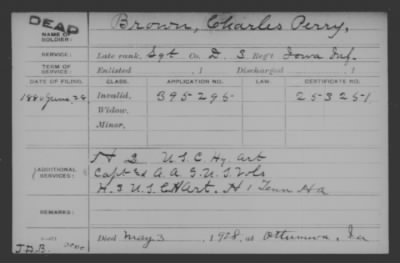 DEAD
NAME OF SOLDIER: Brown, Charles Perry,
SERVICE: Late rank, Sgt Co. D, 3 Reg't Iowa Inf.
TERM OF SERVICE: Enlisted , 1 Discharged , 1
DATE OF FILING. CLASS. APPLICATION NO. LAW. CERTIFICATE NO.
1880 June 28 Invalid, 395295 253251
Widow,
Minor,
H 2 U.S.C. Hy. Art
ADDITIONAL SERVICES: Capt & A. A. G. U.S. Vols
H. 3 U.S.C.H Art. H 1 Tenn HA
REMARKS:
Died May 3, 1928, at Ottumwa, Ia
J.D.B.